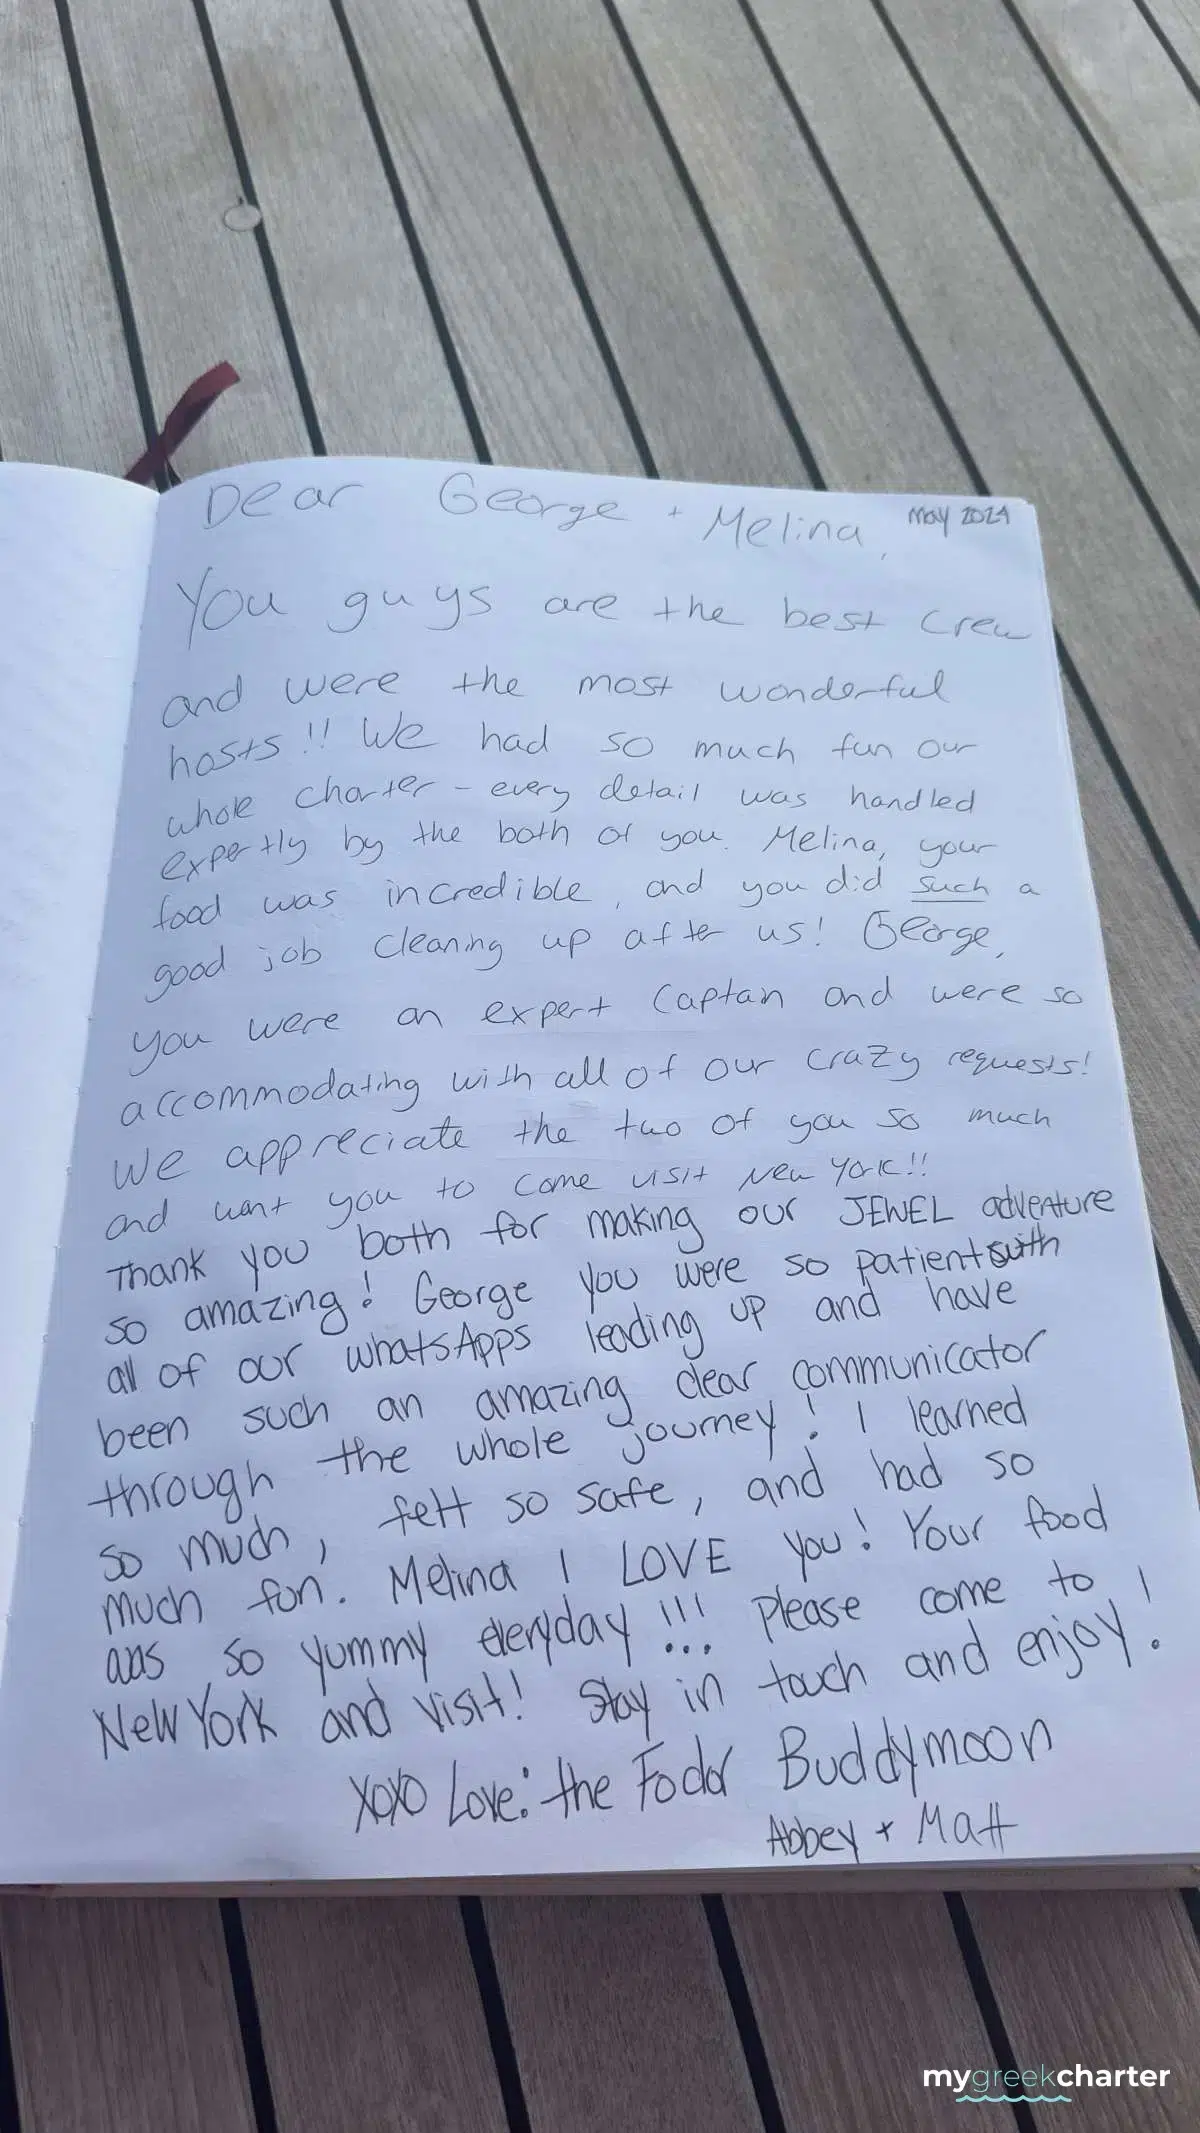 Dear George + Melina,
May 2024
You guys are the best crew
and were the most wonderful
hosts!! We had so much fun our
whole charter - every detail was handled
expertly by the both of you. Melina, your
food was incredible, and you did such a
good job cleaning up after us! George,
you were an expert Captain and were so
accommodating with all of our crazy requests!
We appreciate the two of you so much
and want you to come visit New York!!
Thank you both for making our JEWEL adventure
so amazing! George you were so patient with
all of our whatsApps leading up and have
been such an amazing clear communicator
through the whole journey! I learned
so much, felt so safe, and had so
much fun. Melina I LOVE you! Your food
was so yummy everyday!!! Please come to
New York and visit! Stay in touch and enjoy!
XOXO Love: the Fodor Buddymoon
Abbey + Matt
mygreekcharter